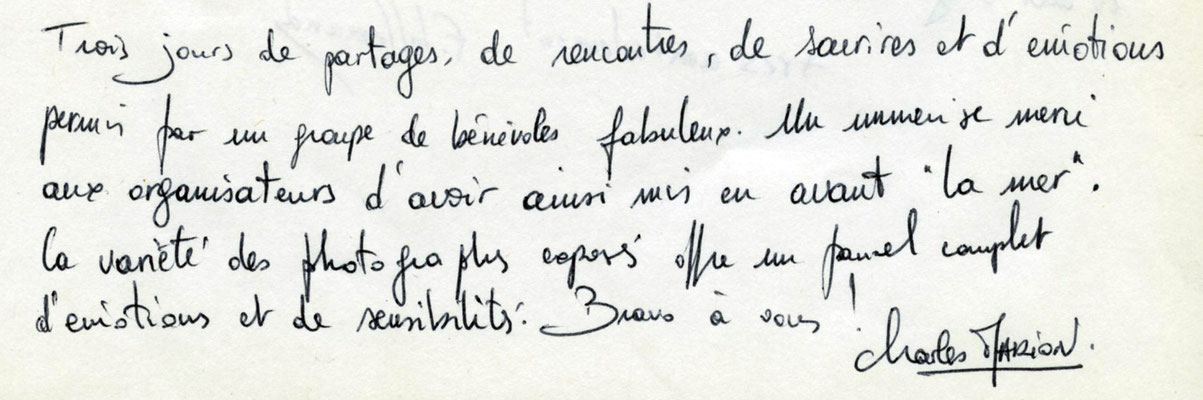 Trois jours de partages, de rencontres, de sourires et d'émotions
permis par un groupe de bénévoles fabuleux. Un immense merci
aux organisateurs d'avoir ainsi mis en avant "la mer".
La variété des photographes exposés offre un pannel complet
d'émotions et de sensibilités. Bravo à vous !
Charles MARION.